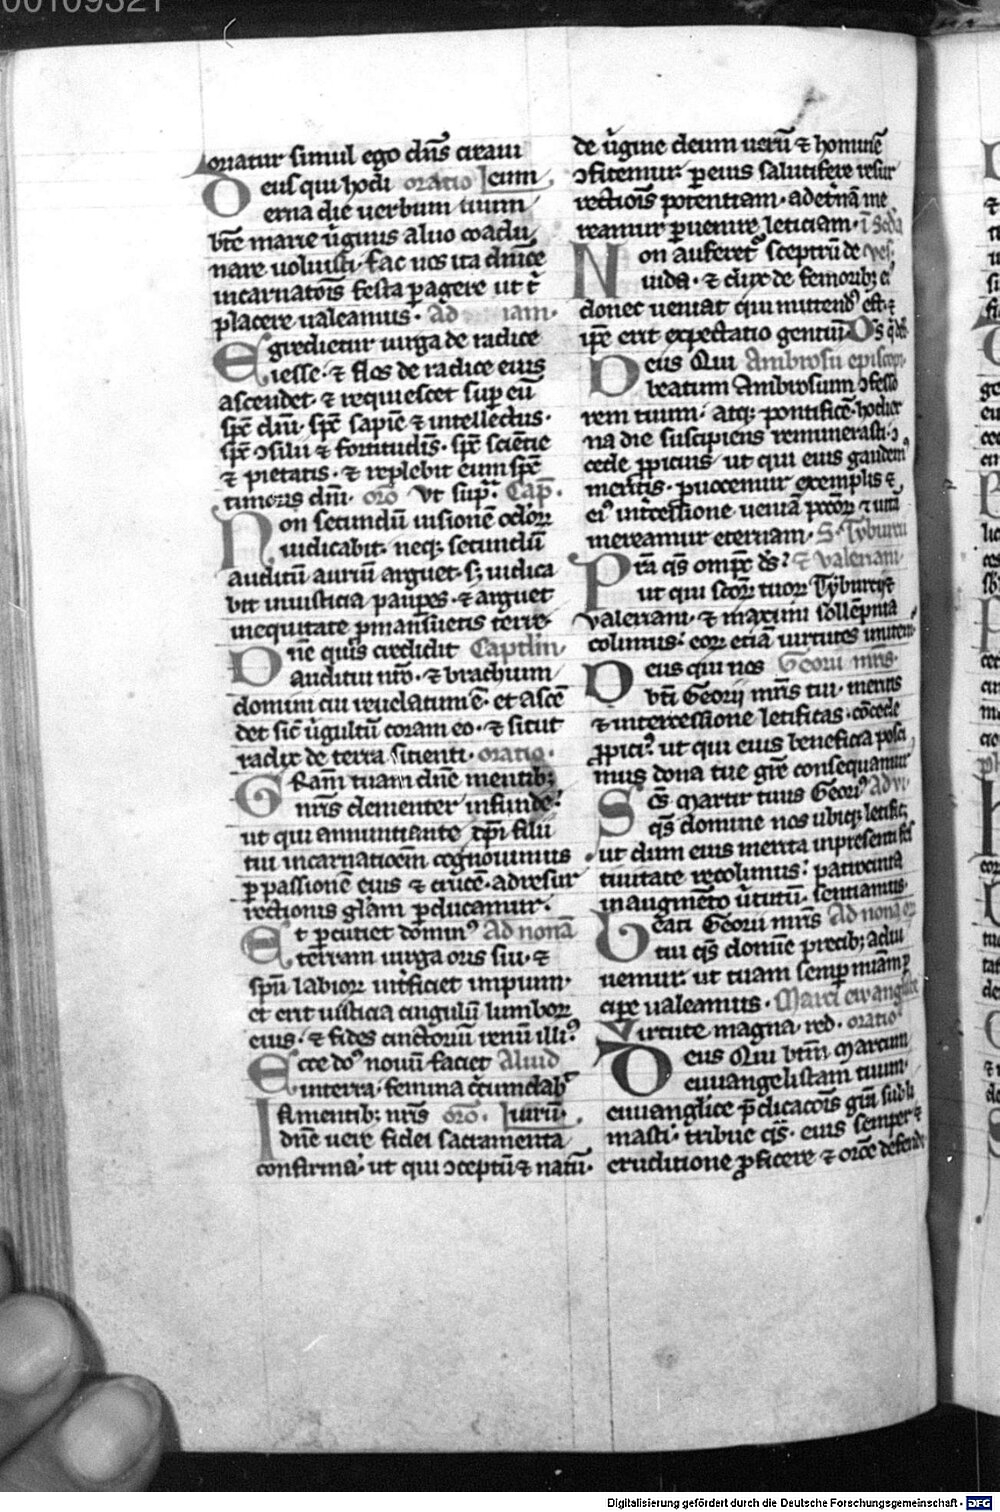 00109321
oriatur simul ego dn̄s creaui
Deus qui hodi oratio
erna die uerbum tuum
bt̄e marie ūginis aluo coadu
nare uoluisti· fac nos ita dn̄ice
incarnatōis festa pagere ut t̄
placere ualeamus· Ad iam·
Egredietur uirga de radice
iesse· ⁊ flos de radice eius
ascendet· ⁊ requiescet sup eū
spc̄ dn̄i· spc̄ sapiē ⁊ intellectus·
spc̄ ɔsilii ⁊ fortitudīs· spc̄ sciētie
⁊ pietatis· ⁊ replebit eum spc̄
timoris dn̄i· or̄o Vt sup̄· Cap̄·
Non secundū uisionē oclor̄
iudicabit· neq; secundū
auditū auriū arguet· s; iudica
bit in iusticia paupes· ⁊ arguet
in equitate p mansuetis terre·
Dn̄e quis credidit Captlm·
auditui nr̄o· ⁊ brachium
domini cui reuelatum ē· et ascē
det sic̄ ūgultū coram eo· ⁊ sicut
radix de terra sitienti· oratio·
Gram̄ tuam dn̄e mentib;
nr̄is clementer infunde·
ut qui annuntiante xp̄i filii
tui incarnatioēm cognouimus
p passionē eius ⁊ crucē· ad resur
rectionis glām pducamur·
Et pcutiet domin⁹ Ad nonā
terram uirga oris sui· ⁊
spū labior̄ int̄ficiet impium·
et erit iusticia cingulū lumbor̄
eius· ⁊ fides cinctoriū renū illi⁹
Ecce do⁹ nouū faciet Aliud
in terra· femina c̄cumdab
In mentib; nr̄is or̄o·
dn̄e uere fidei sacramenta
confirma· ut qui ɔceptū ⁊ natū·
de ūgine deum uerū ⁊ hominē
ɔfitemur· p eius salutifere resur
rectiōis potentiam· ad et̄nā me
reamur puenire leticiam·
Non auferet᷑ sceptrū de
iuda· ⁊ dux de femorib; ei⁹
donec ueniat qui mittend⁹ est· ⁊
ip̄e erit expectatio gentiū·
Deus Qui Ambrosii episcopi
beatum Ambrosium ɔfesso
rem tuum· atq; pontificē· hodier
na die suscipiens remunerasti· ɔ
cede ppicius ut qui eius gaudem⁹
meritis· puocemur exemplis ⁊
ei⁹ int̄cessione ueniā pcc̄or̄ ⁊ uitā
mereamur eternam· S· Tyburcii
Pr̄a qs̄ omp̄c ds̄· ⁊ Valeriani·
ut qui sc̄or̄ tuor̄ Tyburcii
Valeriani· ⁊ maximi sollēpnia
colimus· eor̄ etiā uirtutes imitem·
Deus qui nos Georii mr̄is·
bt̄i Georij mr̄is tui· meritis
⁊ intercessione letificas· cōcede
ppici⁹ ut qui eius beneficia posci
mus dona tue gr̄e consequamur
Sc̄s martir tuus Geori⁹
qs̄ domine nos ubiq; letific;
ut dum eius merita in presenti fes
tiuitate recolimus· patrocinia
in augmēto ūtutū· sentiamus·
Beati Georii mr̄is Ad nona
tui qs̄ domine precib; adiu
uemur· ut tuam semp miām p
cipe ualeamus· Marci ewanglīte
Virtute magna· red· oratio
Deus Qui bt̄m Marcum
euuangelistam tuum·
euuanglice p̄dicacōis gr̄a subli
masti· tribue qs̄· eius semper ⁊
eruditione pficere ⁊ or̄oe defendi
Digitalisierung gefördert durch die Deutsche Forschungsgemeinschaft - DFG